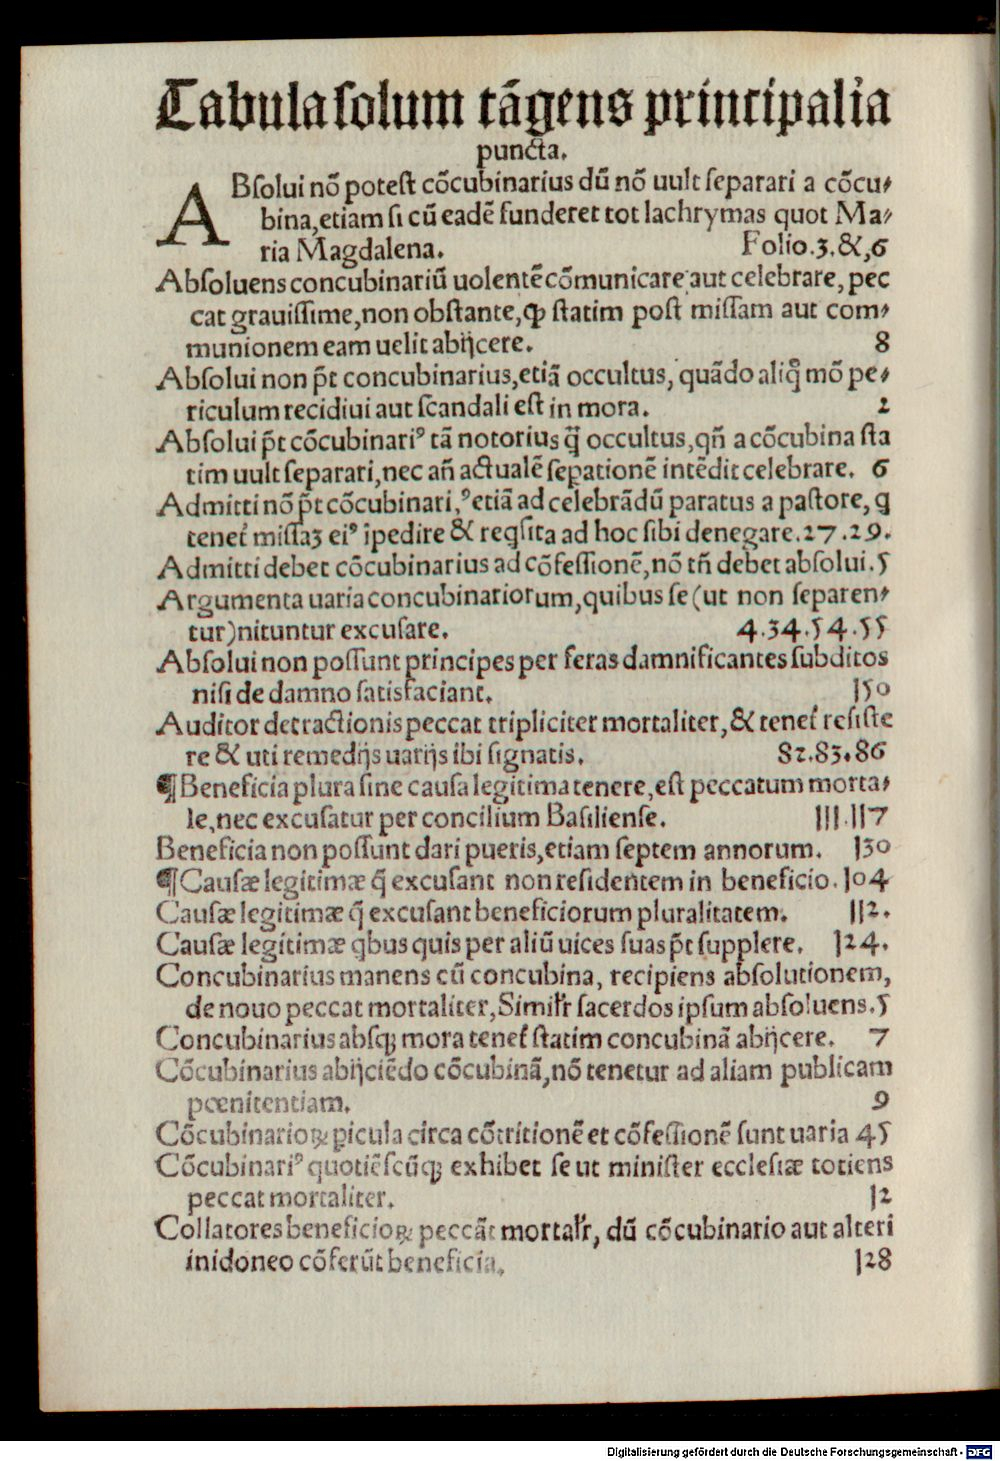 Tabula ſolum tāgens principalia
puncta.
ABſolui nō poteſt cōcubinarius dū nō uult ſeparari a cōcu⸗
bina, etiam ſi cū eadē funderet tot lachrymas quot Ma⸗
ria Magdalena. Folio.3.&,6
Abſoluens concubinariū uolentē cōmunicare aut celebrare, pec
cat grauiſſime, non obſtante, ꝙ ſtatim poſt miſſam aut com⸗
munionem eam uelit abijcere. 8
Abſolui non p̄t concubinarius, etiā occultus, quādo aliq̄ mō pe⸗
riculum recidiui aut ſcandali eſt in mora. 2
Abſolui p̄t cōcubinariꝰ tā notorius q̄̄ occultus, qn̄ a cōcubina ſta
tim uult ſeparari, nec an̄ actualē ſeꝑationē intēdit celebrare. 6
Admitti nō p̄t cōcubinari,ꝰ etiā ad celebrādū paratus a paſtore, q
tenet᷑ miſſaꝫ eiꝰ ipedire & reqſita ad hoc ſibi denegare.27.29.
Admitti debet cōcubinarius ad cōfeſſionē, nō tn̄ debet abſolui.5
Argumenta uaria concubinariorum, quibus ſe (ut non ſeparen⸗
tur) nituntur excuſare. 4.34.54.55
Abſolui non poſſunt principes per feras damnificantes ſubditos
niſi de damno ſatisfaciant. 150
Auditor detractionis peccat tripliciter mortaliter, & tenet᷑ reſiſte
re & uti remedijs uarijs ibi ſignatis. 82.83.86
¶Beneficia plura ſine cauſa legitima tenere, eſt peccatum morta⸗
le, nec excuſatur per concilium Baſilienſe. 111.117
Beneficia non poſſunt dari pueris, etiam ſeptem annorum. 130
¶Cauſæ legitimæ q̄ excuſant non reſidentem in beneficio.104
Cauſæ legitimæ q̄ excuſant beneficiorum pluralitatem. 112.
Cauſæ legitimæ qbus quis per aliū uices ſuas p̄t ſupplere. 124.
Concubinarius manens cū concubina, recipiens abſolutionem,
de nouo peccat mortaliter, Simil̄r ſacerdos ipſum abſoluens.5
Concubinarius abſqꝫ mora tenet᷑ ſtatim concubinā abijcere. 7
Cōcubinarius abijciēdo cōcubinā, nō tenetur ad aliam publicam
pœnitentiam. 9
Cōcubinarioꝝ ꝑicula circa cōtritionē et cōfeſſionē ſunt uaria 45
Cōcubinariꝰ quotiēſcūqꝫ exhibet ſe ut miniſter eccleſiæ totiens
peccat mortaliter. 12
Collatores beneficioꝝ peccāt mortal̄r, dū cōcubinario aut alteri
inidoneo cōferūt beneficia. 128
Digitalisierung gefördert durch die Deutsche Forschungsgemeinschaft - DFG